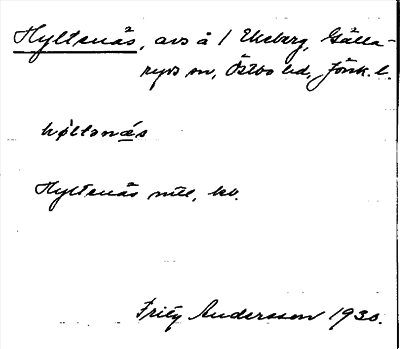 Hyltenäs, avs å 1 Ekeberg, Gälla-
ryds sn, Östbo hd, Jönk. l.
høltənäs
Hyltenäs mtl, kv.
Fritz Andersson 1930.